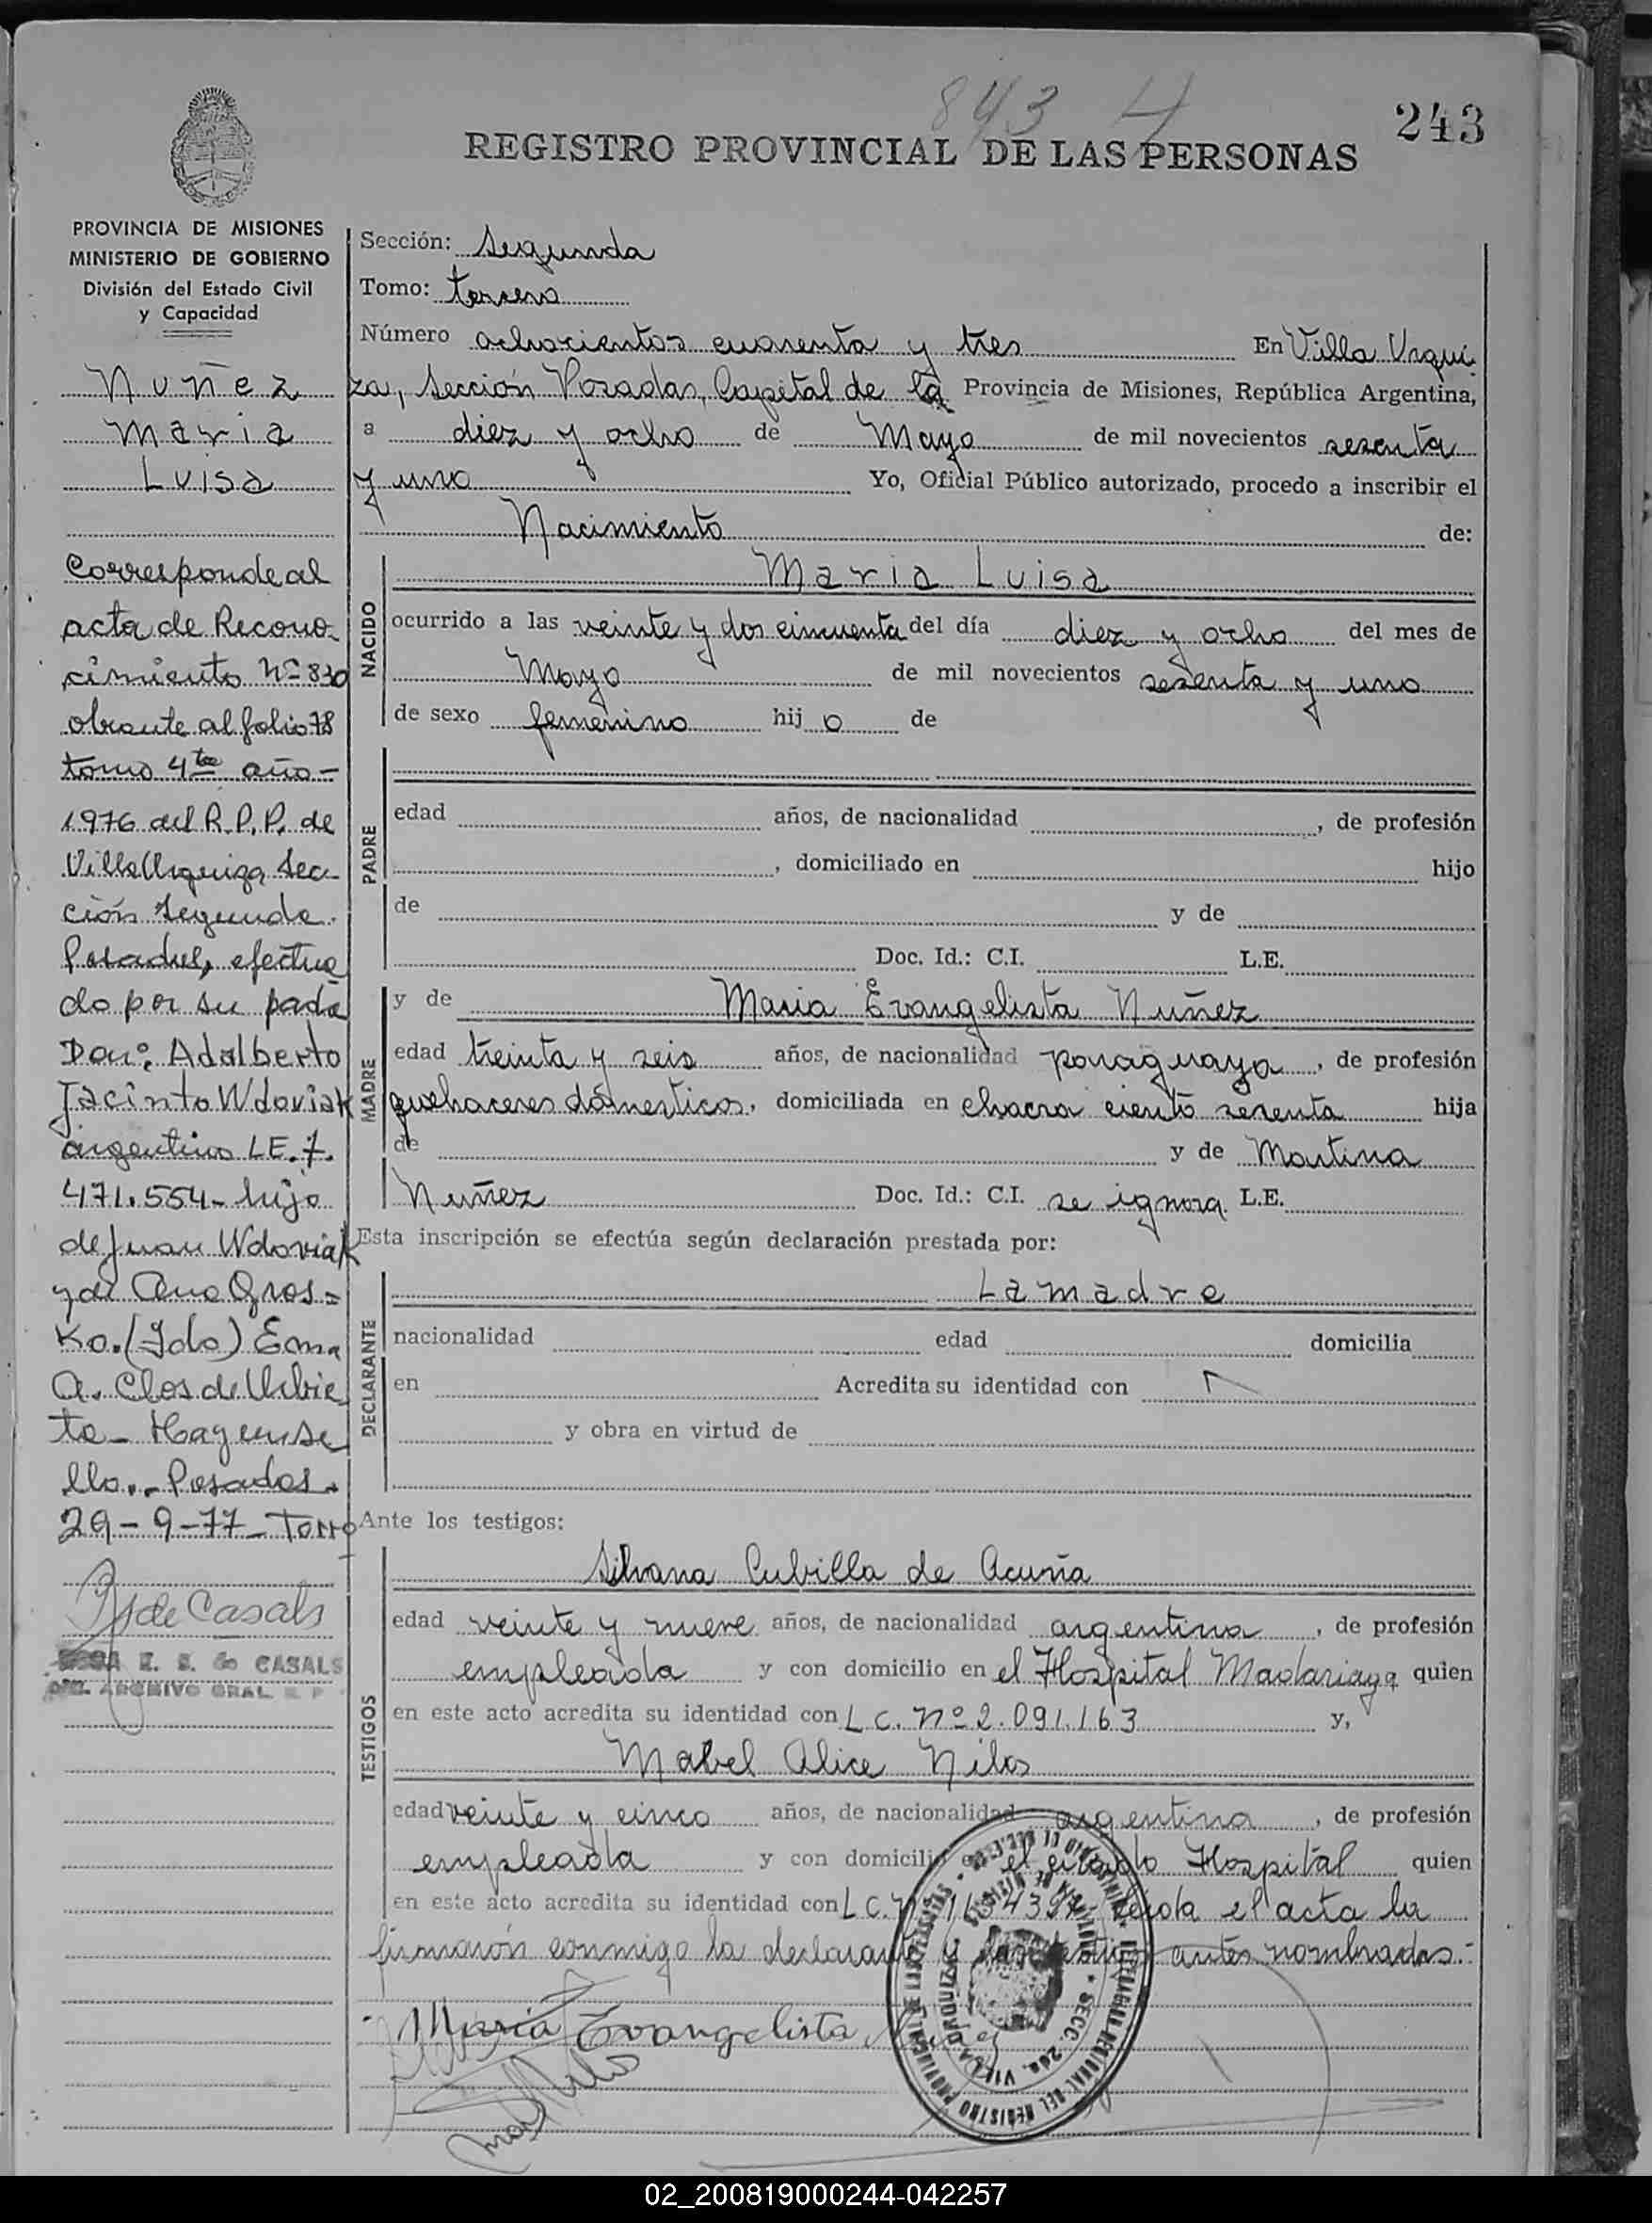 843 4
243
REGISTRO PROVINCIAL DE LAS PERSONAS
PROVINCIA DE MISIONES
MINISTERIO DE GOBIERNO
División del Estado Civil
y Capacidad
Nuñez
Maria
Luisa
Corresponde al
acta de Recono-
cimiento Nº 830
obrante al folio 78
tomo 4to año-
1976 del R.P.P. de
Villa Urquiza Sec-
ción Segunda.
Posadas, efectua
do por su padre
Don: Adalberto
Jacinto Wdoviak
argentino LE. 7.
471.554- hijo
de Juan Wdoviak
y de Ana Gros=
Ko. (Fdo) Ema
A. Clos de Urbie
ta- Hay un se
llo.- Posadas.
29-9-77- Torro
de Casals
E. S. de CASALS
ARCHIVO GRAL. R P
Sección: Segunda
Tomo: tercero
Número ochocientos cuarenta y tres En Villa Urqui
za, Sección Posadas, Capital de la Provincia de Misiones, República Argentina,
a diez y ocho de Mayo de mil novecientos sesenta
y uno Yo, Oficial Público autorizado, procedo a inscribir el
Nacimiento de:
NACIDO
Maria Luisa
ocurrido a las veinte y dos cincuenta del día diez y ocho del mes de
Mayo de mil novecientos sesenta y uno
de sexo femenino hij a de
PADRE
edad años, de nacionalidad , de profesión
, domiciliado en hijo
de y de
Doc. Id.: C.I. L.E.
MADRE
y de Maria Evangelista Nuñez
edad treinta y seis años, de nacionalidad paraguaya, de profesión
quehaceres dómesticos, domiciliada en chacra ciento sesenta hija
de y de Martina
Nuñez Doc. Id.: C.I. se ignora L.E.
Esta inscripción se efectúa según declaración prestada por:
DECLARANTE
La madre
nacionalidad edad domicilia
en Acredita su identidad con
y obra en virtud de
Ante los testigos:
TESTIGOS
Silvana Cubilla de Acuña
edad veinte y nueve años, de nacionalidad argentina, de profesión
empleada y con domicilio en el Hospital Madariaga quien
en este acto acredita su identidad con L C. Nº 2.091.163 y,
Mabel Alice Nilos
edad veinte y cinco años, de nacionalidad argentina, de profesión
empleada y con domicilio en el citado Hospital quien
en este acto acredita su identidad con L C. Leida el acta la
firmarón conmigo la declarante y los testigos antes nombrados.-
Maria Evangelista Nuñez
02_200819000244-042257